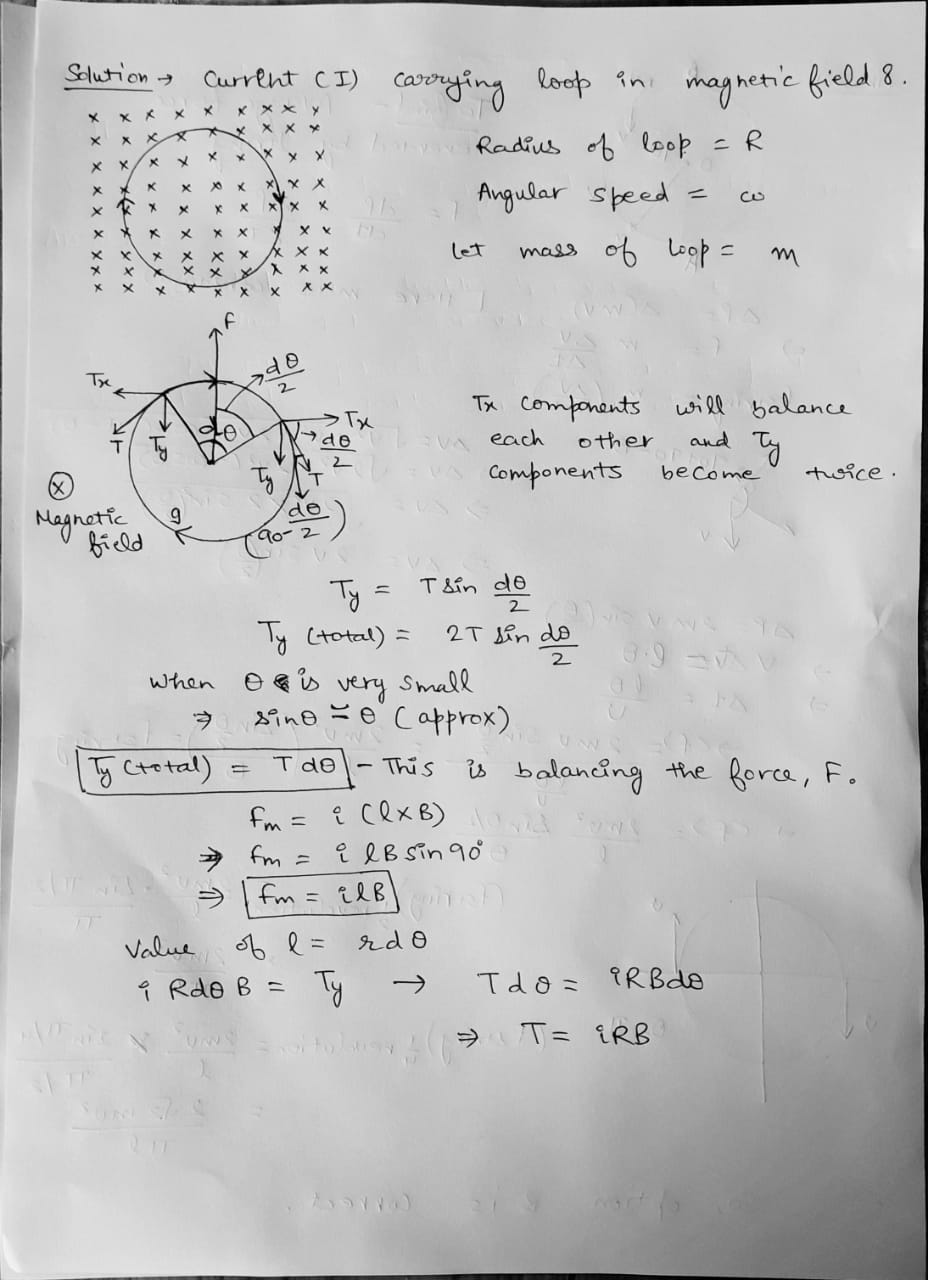 Solution → Current (I) carrying loop in magnetic field 8.
Radius of loop = R
Angular speed = ω
let mass of loop = m
F
dθ/2
Tx
T
Ty
dθ
Tx
dθ/2
Ty
T
(90 - dθ/2)
i
ⓧ
Magnetic field
Tx components will balance
each other and Ty
components become twice.
Ty = T sin dθ/2
Ty (total) = 2T sin dθ/2
When θ is very small
⇒ sinθ ≃ θ (approx)
Ty (total) = T dθ - This is balancing the force, F.
fm = i (l×B)
⇒ fm = i lB sin 90°
⇒ fm = ilB
Value of l = rdθ
i Rdθ B = Ty → T dθ = iRBdθ
⇒ T = iRB